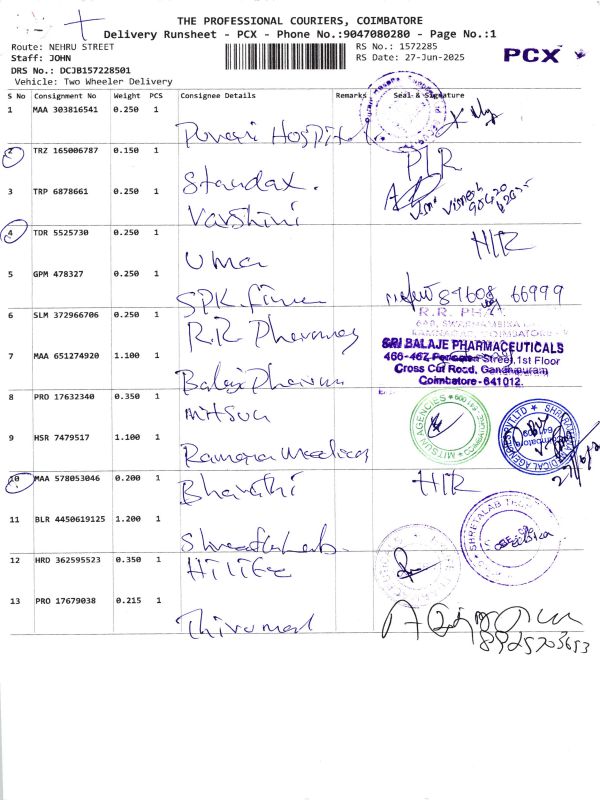 THE PROFESSIONAL COURIERS, COIMBATORE
Delivery Runsheet - PCX - Phone No.:9047080280 - Page No.:1
Route: NEHRU STREET
RS No.: 1572285
Staff: JOHN
RS Date: 27-Jun-2025
PCX
DRS No.: DCJB157228501
Vehicle: Two Wheeler Delivery
S No Consignment No Weight PCS Consignee Details Remarks Seal & Signature
1 MAA 303816541 0.250 1 Hospital
2 TRZ 165006787 0.150 1 Standax. PIR
3 TRP 6878661 0.250 1 Varshini
4 TDR 5525730 0.250 1 Uma HIR
5 GPM 478327 0.250 1 SPK 87608 66999
6 SLM 372966706 0.250 1 R.R Pharmacy
R.R. PHA
7 MAA 651274920 1.100 1 Balaji Pharma
SRI BALAJE PHARMACEUTICALS
466-467 Street, 1st Floor
Cross Cut Road, Gandhipuram
Coimbatore - 641012.
8 PRO 17632340 0.350 1 Mitsun
MITSUN AGENCIES
9 HSR 7479517 1.100 1 Ramana Medical
10 MAA 578053046 0.200 1 Bharathi HIR
11 BLR 4450619125 1.200 1
12 HRD 362595523 0.350 1 Hilife
13 PRO 17679038 0.215 1 Thirumal
8925703653